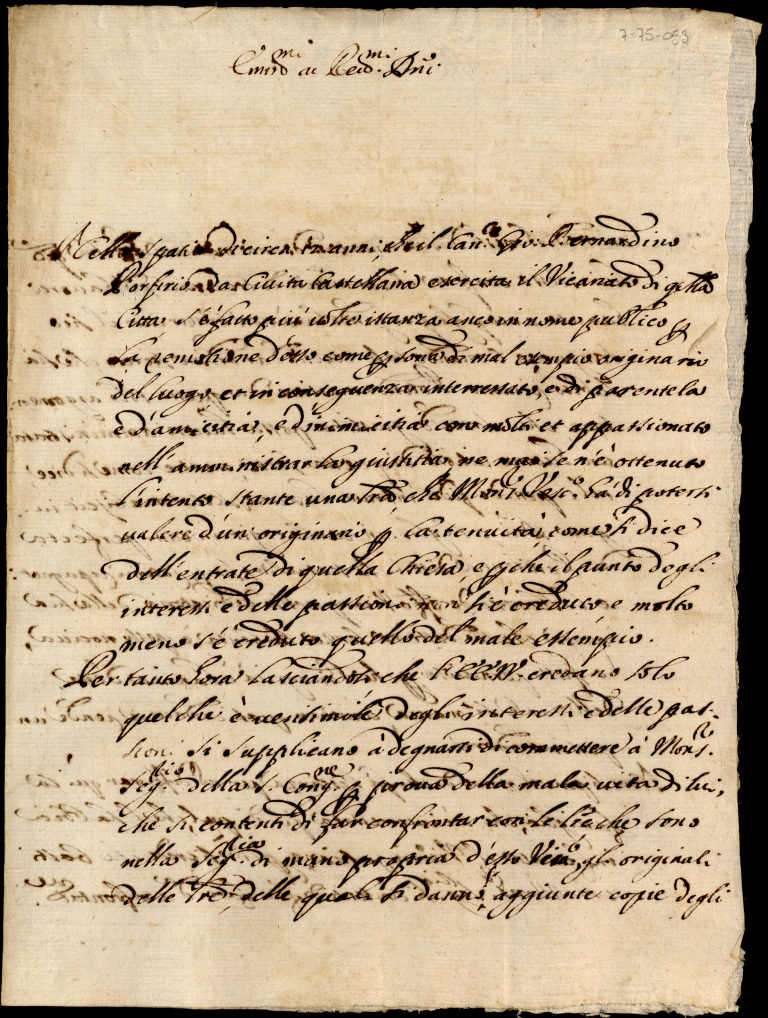 7-75-053
Em.mi ac Red.mi Dni
Nello spatio di circa anni, che il Can.co Gio: Bernardino
Porfirio da Civita Castellana esercita il Vicariato di q.lla
Città s'è fatto più volte istanza anco in nome publico p
la remotione d'esso come p.sona di mal esempio originario
del luogo et in conseguenza interressato, e di parentela
e d'amicitia, e d'inimicitia con molti et appassionato
nell'amministrar la giustitia, ne mai se n'è ottenuto
l'intento stante una lra che Mons.r Vesc.o hà di potersi
valere d'un originario p la tenuità come si dice
dell'entrate di quella Chiesa, e p.che il punto degli
interessi e delle passioni non si è creduto e molto
meno s'è creduto quello del male essempio.
Per tanto hora lasciandosi che l'EE.VV. credano solo
quel che è verisimile degl'interessi e delle pas-
sioni si supplicano à degnarsi di commettere à Mons.r
Seg.rio della s. Cong.ne p prova della mala vita di lui,
che si contenti di far confrontar con le lre che sono
nella Seg.ria di mano propria d'esso Vic.o gl'originali
delle lre, delle quali si danno aggiunte copie degli